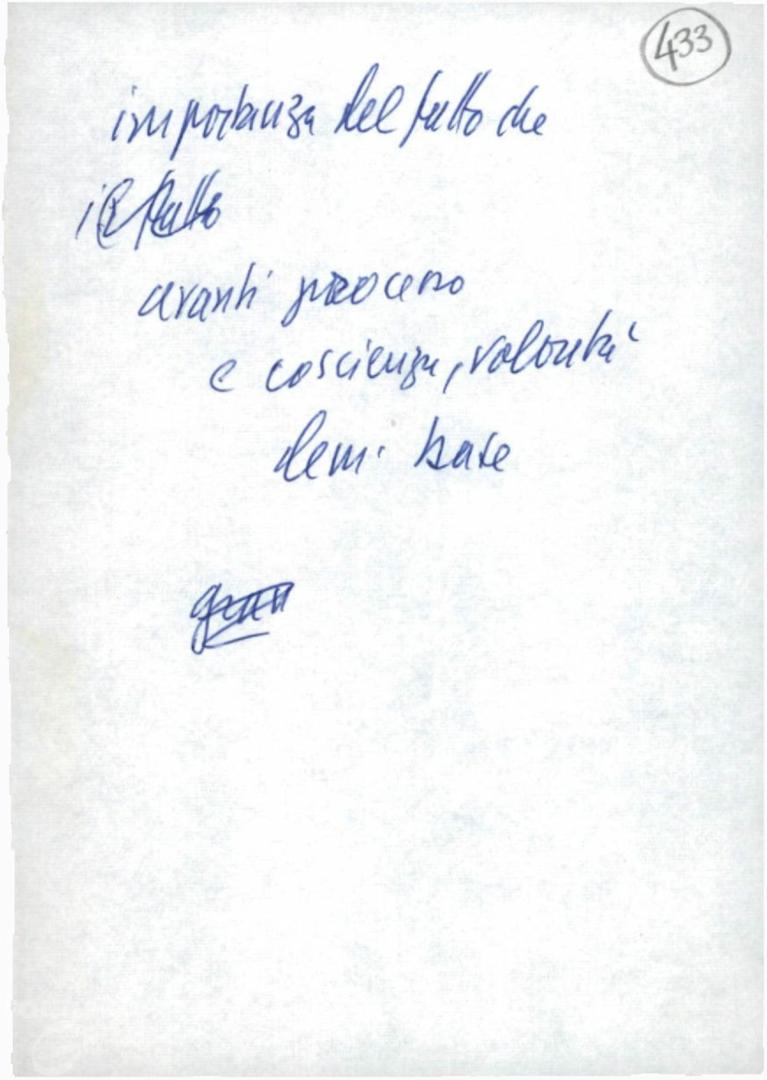 433
importanza del fatto che
il fatto
avanti processo
e coscienza, volontà
base